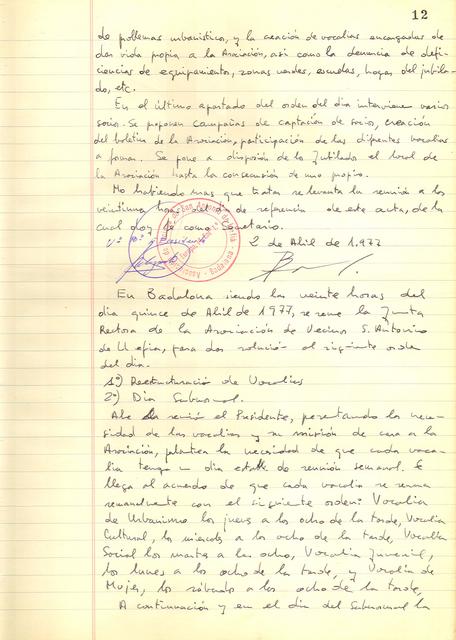 12
de problemas urbanísticos, y la creación de vocalías encargadas de
dar vida propia a la Asociación, asi como la denuncia de defi-
ciencias de equipamientos, zonas verdes, escuelas, hogar del jubila-
do, etc.
En el último apartado del orden del dia intervienen varios
socios. Se proponen campañas de captación de socios, creación
del boletin de la Asociación, participación de las diferentes vocalias
a formar. Se pone a disposición de los Jubilados el local de
la Asociación hasta la consecución de uno propio.
No habiendo mas que tratar se levanta la reunión a las
veintiuna horas del día de referencia de este acta, de la
cual doy fe como Secretario.
Vº Bº Presidente
2 de Abril de 1.977
En Badalona siendo las veinte horas del
día quince de Abril de 1977, se reune la Junta
Rectora de la Asociación de Vecinos S. Antonio
de Llefia, para dar solución al siguiente orden
del dia.
1º) Reestructuración de Vocalias
2º) Dia Semanal.
Abre la reunión el Presidente, presentando la nece-
sidad de las vocalias y su misión de cara a la
Asociación, plantea la necesidad de que cada voca-
lia tenga un dia estable de reunión semanal. Se
llega al acuerdo de que cada vocalia se reuna
semanalmente con el siguiente orden: Vocalia
de Urbanismo los jueves a las ocho de la tarde, Vocalia
Cultural, los miercoles a las ocho de la tarde, Vocalia
Social los martes a las ocho, Vocalia Juvenil,
los lunes a las ocho de la tarde, y Vocalia de
Mujer, los sábados a las ocho de la tarde.
A continuación y en el dia del Semanal la